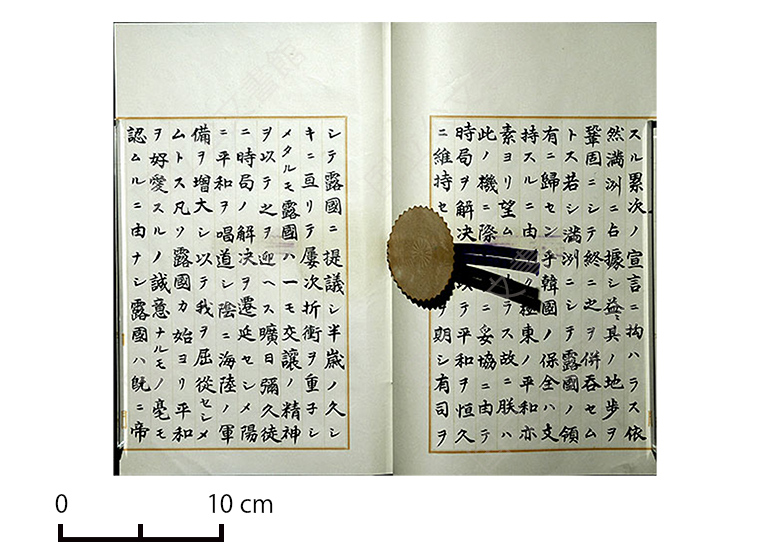 スル累次ノ宣言ニ拘ハラス依
然満洲ニ占據シ益其ノ地歩ヲ
鞏固ニシテ終ニ之ヲ併呑セム
トス若シ満洲ニシテ露國ノ領
有ニ歸セン乎韓國ノ保全ハ支
持スルニ由 ク極東ノ平和亦
素ヨリ望ム ラス故ニ朕ハ
此ノ機ニ際 ニ妥協ニ由テ
時局ヲ解決 以テ平和ヲ恒久
ニ維持セ ヲ期シ有司ヲ
シテ露國ニ提議シ半歳ノ久シ
キニ亘リテ屢次折衝ヲ重子シ
メタルモ露國ハ一モ交讓ノ精神
ヲ以テ之ヲ迎ヘス曠日彌久徒
ニ時局ノ解決ヲ遷延セシメ陽
ニ平和ヲ唱道シ陰ニ海陸ノ軍
備ヲ増大シ以テ我ヲ屈從セシメ
ムトス凡ソ露國カ始ヨリ平和
ヲ好愛スルノ誠意ナルモノ毫モ
認ムルニ由ナシ露國ハ既ニ帝
0 10 cm